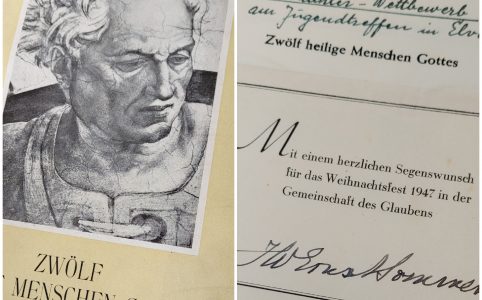 ZWÖLF
MENSCHEN
Wettbewerb
am Jugendtreffen in
Zwölf heilige Menschen Gottes
Mit einem herzlichen Segenswunsch
für das Weihnachtsfest 1947 in der
Gemeinschaft des Glaubens
JWErnst Sommer